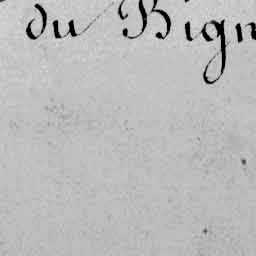 du Bign